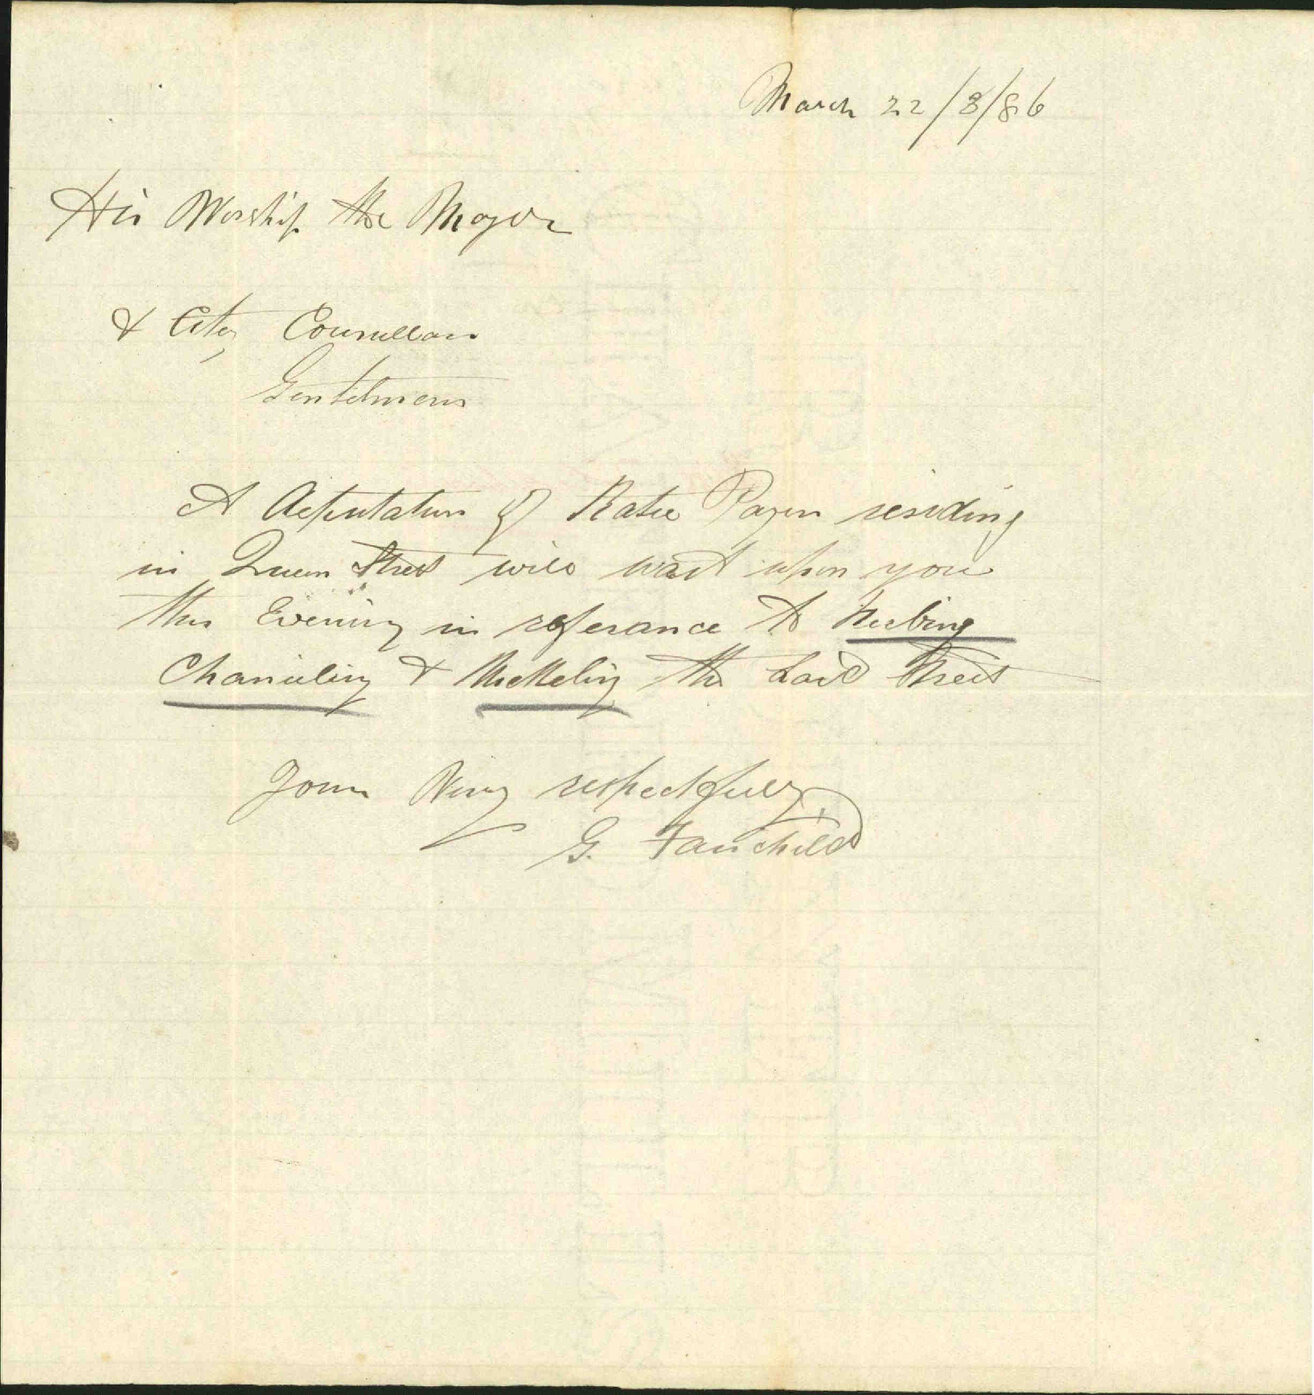 March 22/3/86
His Worship the Mayor
& City Councillors
Gentelmen
A deputation of Rate Payers residing
in Queen Street will wait upon you
this Evening in referance to Kerbing
Channeling & Metteling the said Street
Yours Very respectfully
G. Fairchild